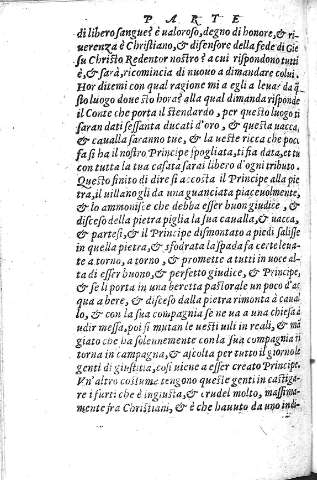 PARTE
di libero sangue? è ualoroso, degno di honore, & ri
uerenza è Christiano, & difensore della fede di Gie
su Christo Redentor nostro? a cui rispondono tutti
è, & sarà, ricomincia di nuouo a dimandare colui.
Hor ditemi con qual ragione mi a egli a leuar da q̃
sto luogo doue sto hora? alla qual dimanda risponde
il Conte che porta il stendardo, per questo luogo ti
saran dati sessanta ducati d'oro, & questa uacca,
& caualla saranno tue, & la ueste ricca che poco
fa si ha il nostro Principe spogliata, ti sia data, et tu
con tutta la tua casata sarai libero d'ogni tributo.
Questo finito di dire si accosta il Principe alla pie
tra, il uillano gli da una guanciata piaceuolmente,
& lo ammonisce che debba esser buon giudice, &
disceso della pietra piglia la sua caualla, & uacca,
& partesi, & il Principe dismontato a piedi salisse
in quella pietra, & sfodrata la spada fa certe leuat
e a torno, a torno, & promette a tutti in uoce al-
ta di esser buono, & perfetto giudice, & Principe,
& se li porta in una beretta pastorale un poco d'ac
qua a bere, & disceso dalla pietra rimonta à caual
lo, & con la sua compagnia se ne ua a una chiesa à
udir messa, poi si mutan le uesti uili in reali, & mã
giato che ha solennemente con la sua compagnia ri
torna in campagna, & ascolta per tutto il giorno le
genti di giustitia, cosi uiene a esser creato Principe.
Vn'altro costume tengono queste genti in castiga-
re i furti che è ingiusta, & crudel molto, massima-
mente fra Christiani, & è che hauuto da uno indi-